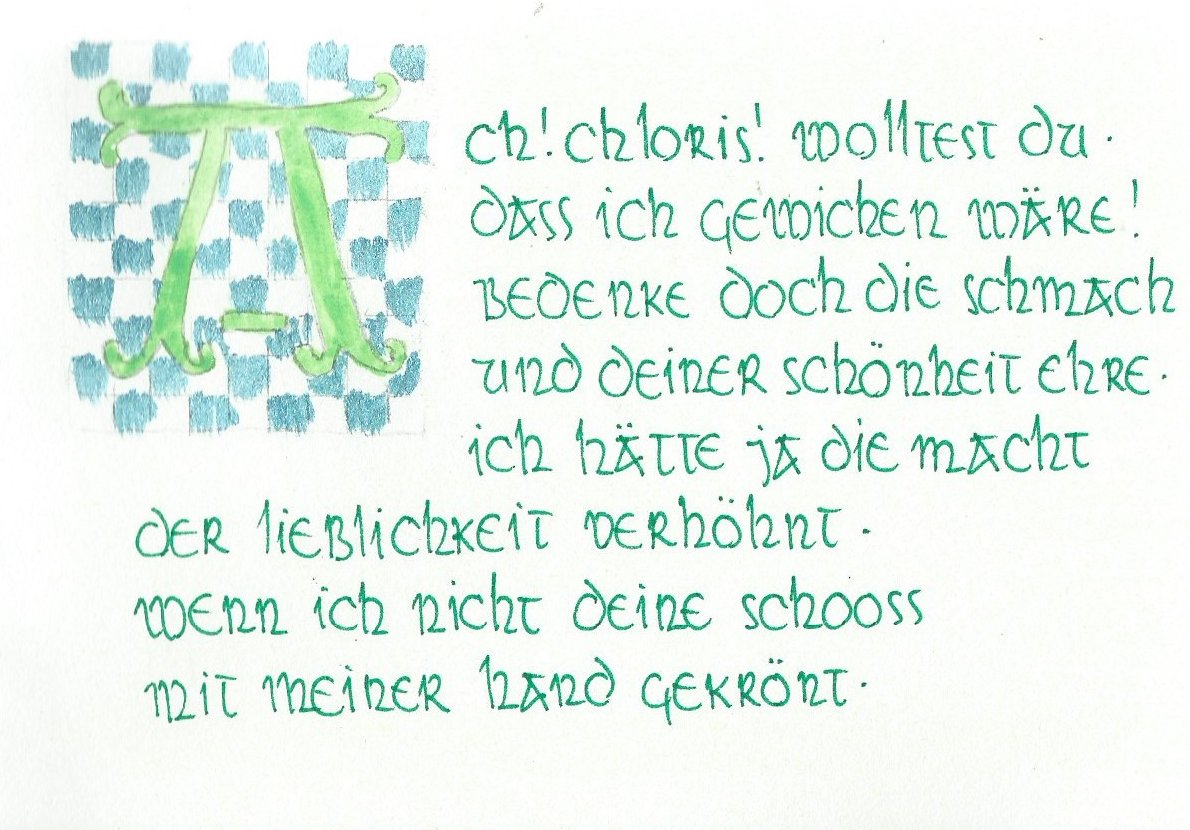 Ach! Chloris! wolltest du.
dass ich gewichen wäre!
Bedenke doch die schmach
und deiner schönheit ehre.
ich hätte ja die macht
der lieblichkeit verhöhnt.
wenn ich nicht deine schooss
mit meiner hand gekrönt.